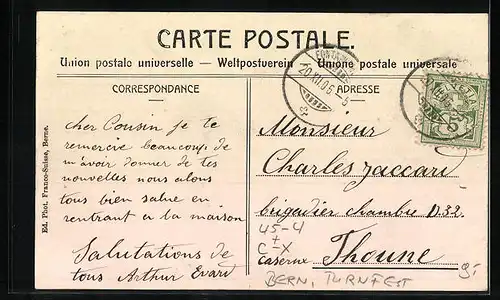 CARTE POSTALE.
Union postale universelle — Weltpostverein — Unione postale universale
CORRESPONDANCE
ADRESSE
cher Cousin je te
remercie beaucoup de
m'avoir donner de tes
nouvelles nous alons
tous bien salue en
rentrant a la maison
Salutations de
tous Arthur Evard
Monsieur
Charles Jaccard
brigadier chambre D.32
caserne Thoune
45-4
C X
BERN, TURNFEST
9.-
20.XII.06. 5
HELVETIA
Ed. Phot. Franco-Suisse, Berne.